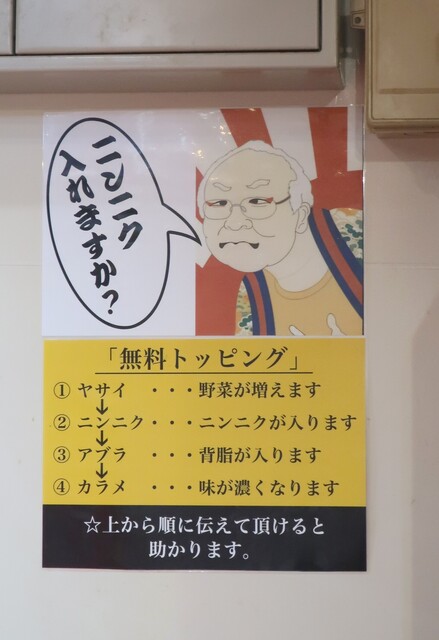 ニンニク
入れますか？
「無料トッピング」
① ヤサイ ・・・野菜が増えます
↓
② ニンニク・・・ニンニクが入ります
↓
③ アブラ ・・・背脂が入ります
↓
④ カラメ ・・・味が濃くなります
☆上から順に伝えて頂けると
助かります。